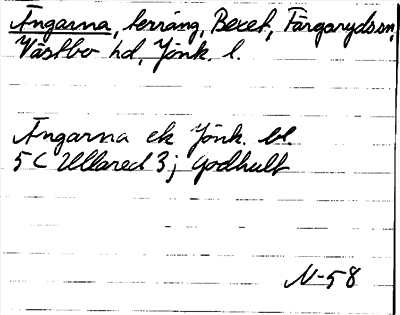 Ängarna, terräng, Bexet, Färgaryds sn,
Västbo hd, Jönk. l.
Ängarna ek Jönk. bl.
5 C Ullared 3; Godhult
N-58